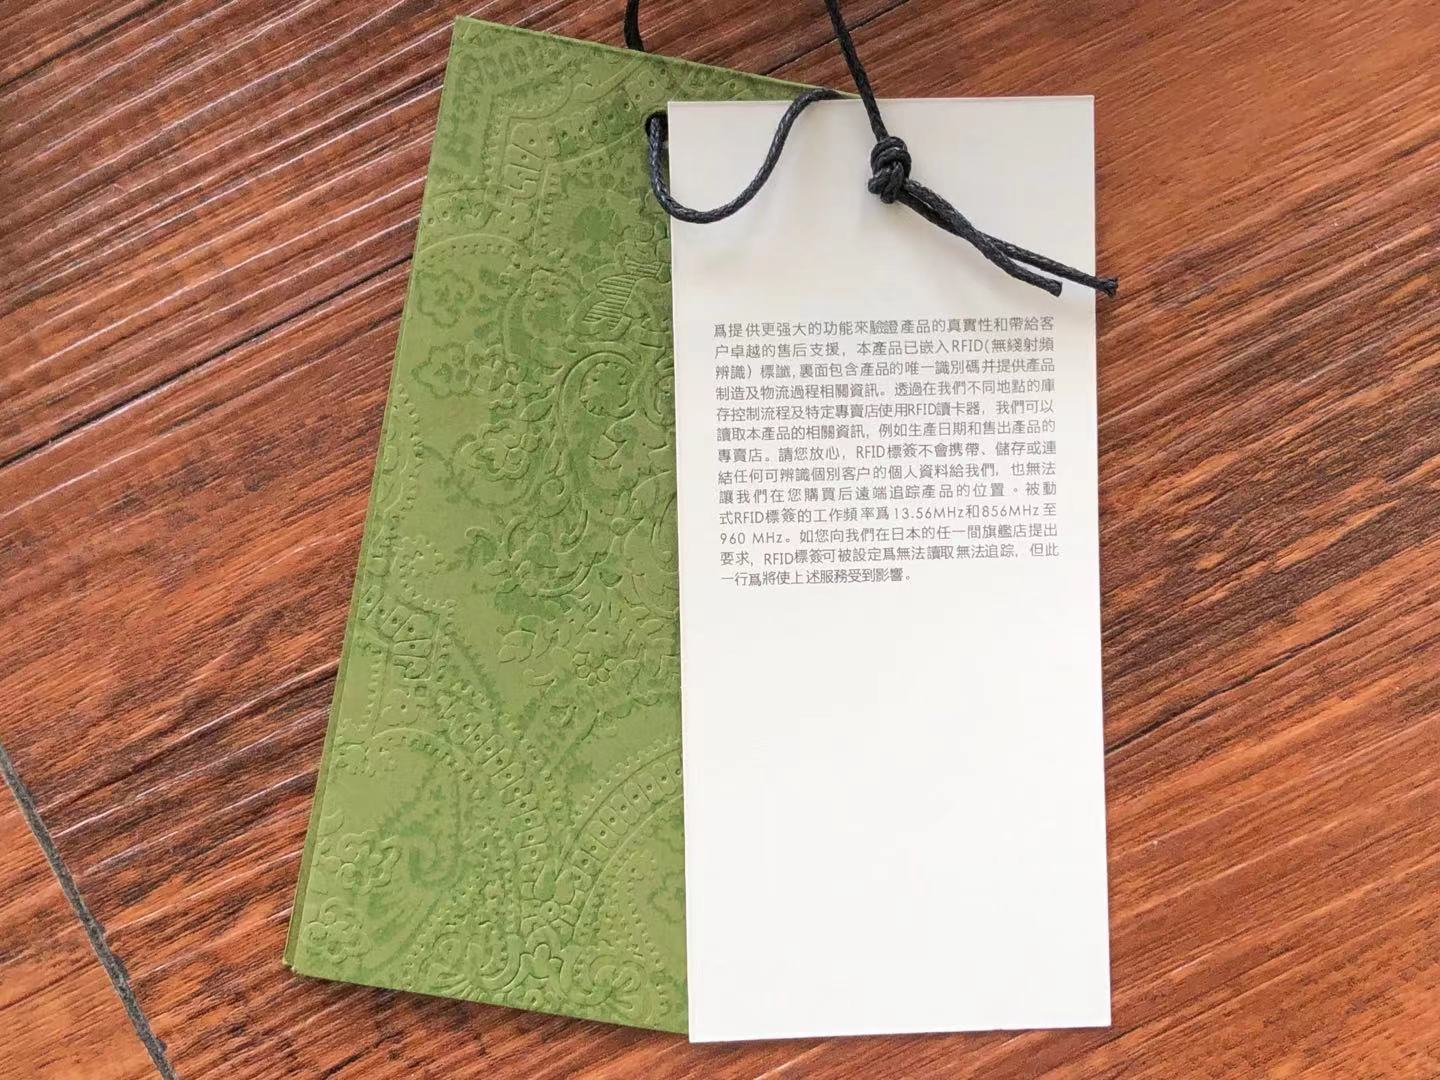 爲提供更强大的功能來驗證產品的真實性和帶給客
户卓越的售后支援，本產品已嵌入RFID(無綫射頻
辨識）標讖,裏面包含產品的唯一識別碼并提供產品
制造及物流過程相關資訊。透過在我們不同地點的庫
存控制流程及特定專賣店使用RFID讀卡器，我們可以
讀取本產品的相關資訊，例如生產日期和售出產品的
專賣店。請您放心，RFID標簽不會携帶、儲存或連
結任何可辨識個別客户的個人資料給我們，也無法
讓我們在您購買后遠端追踪產品的位置。被動
式RFID標簽的工作頻率爲13.56MHz和856MHz至
960 MHz。如您向我們在日本的任一間旗艦店提出
要求，RFID標簽可被設定爲無法讀取無法追踪，但此
一行爲將使上述服務受到影響。